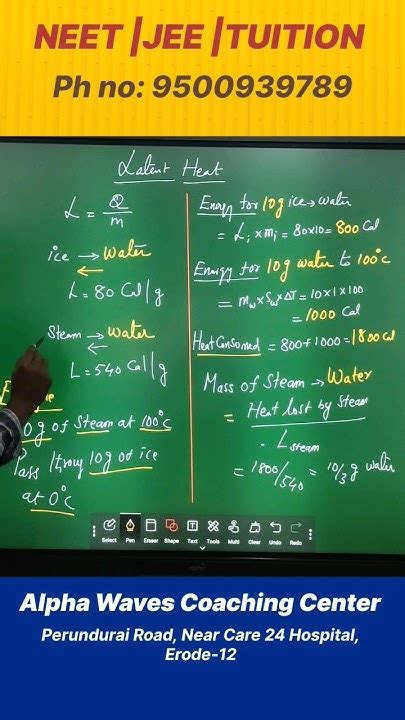 NEET |JEE |TUITION
Ph no: 9500939789
Latent Heat
L = Q/m
ice → Water
←
L = 80 Cal/g
Steam → Water
←
L = 540 Cal/g
0g of Steam at 100°C
Pass 10g of ice
at 0°C
Energy for 10g ice → water
= Li × mi = 80×10 = 800 Cal
Energy for 10g water to 100°C
= mw × Sw × ΔT = 10 × 1 × 100
= 1000 Cal
Heat Consumed = 800 + 1000 = 1800 Cal
Mass of Steam → Water
= Heat lost by Steam
L steam
= 1800/540 = 10/3 g water
Select Pen Eraser Shape Text Tools Multi Clear Undo Redo
Alpha Waves Coaching Center
Perundurai Road, Near Care 24 Hospital,
Erode-12